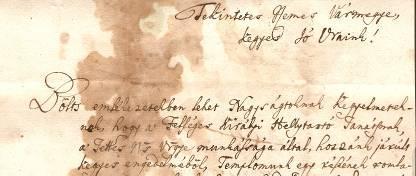 Tekintetes Nemes Vármegye,
Kegyes Jó Uraink!
Bölts emlékezetekben lehet Nagyságtoknak Kegyelmetek-
nek, hogy a Felséges Királyi Helytartó Tanátsnak,
a Ttes Ns Vgye munkássága által, hozzánk járúlt
kegyes engedelméből, Templomunk egy részének romla-